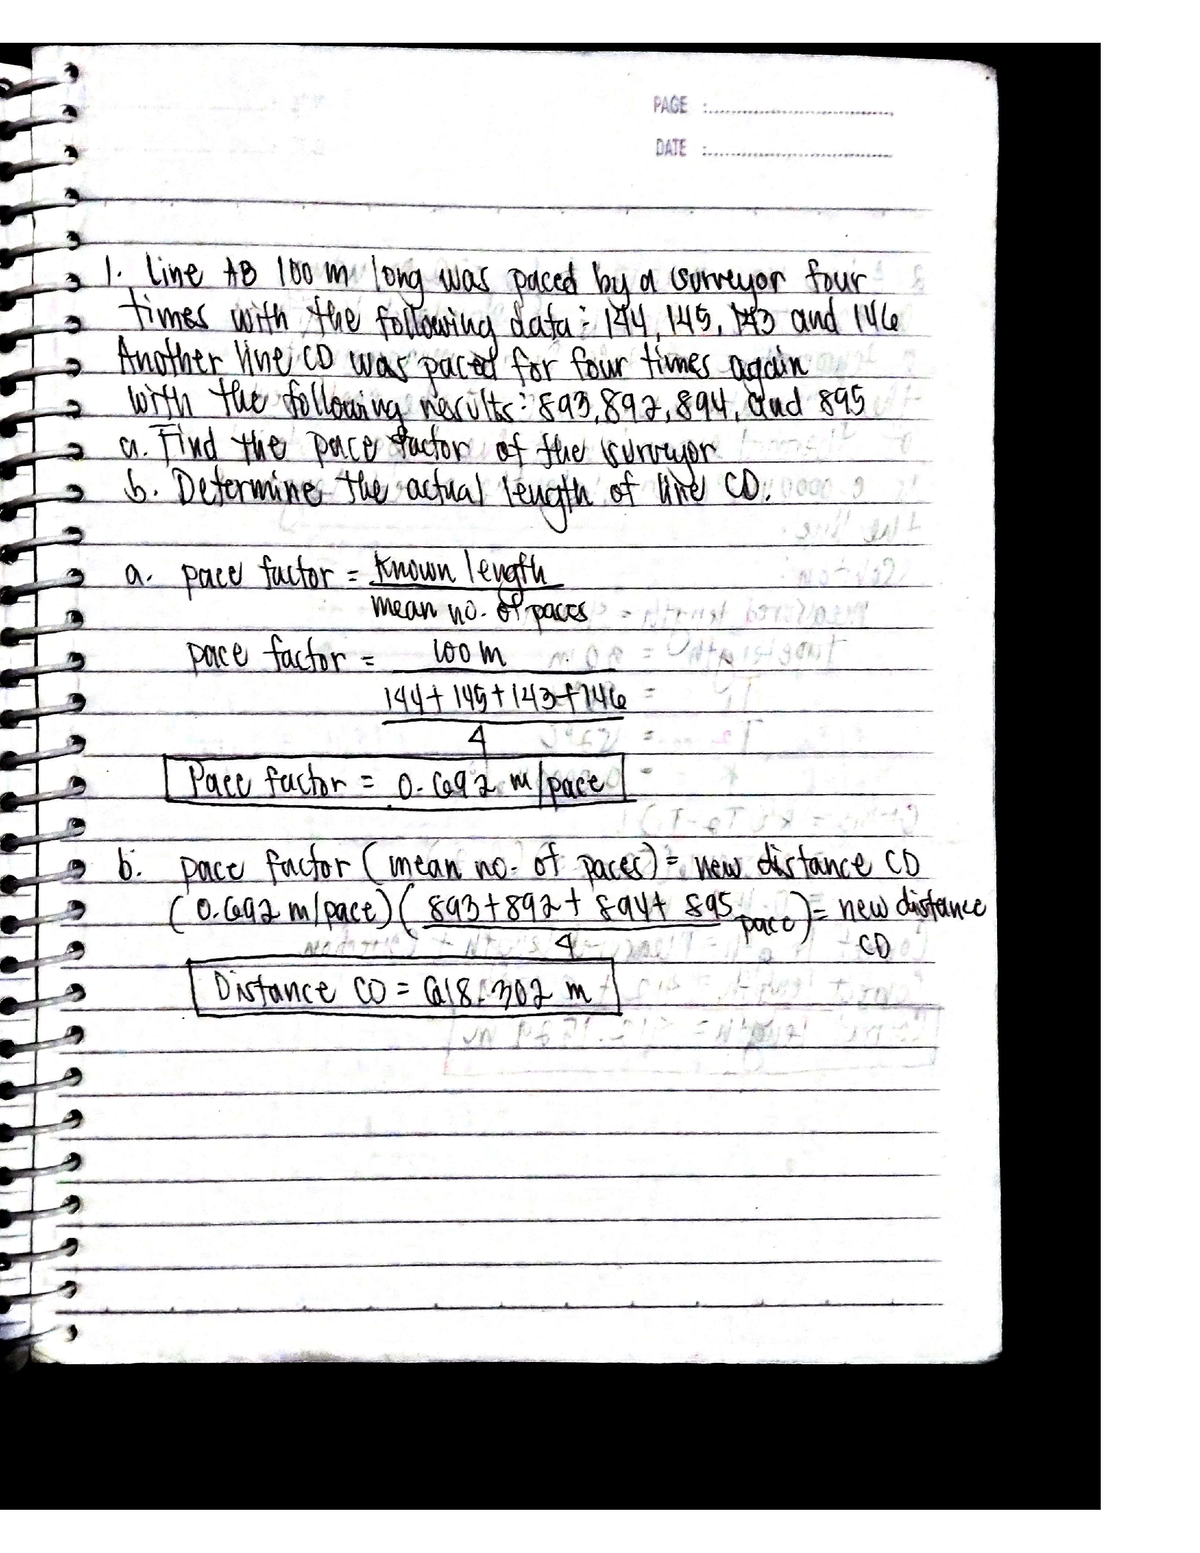 PAGE :
DATE :
1. Line AB 100 m long was paced by a surveyor four
times with the following data: 144, 145, 143 and 146
Another line CD was paced for four times again
with the following results: 893, 892, 894, and 895
a. Find the pace factor of the surveyor
b. Determine the actual length of line CD.
a. pace factor = known length
mean no. of paces
pace factor = 100 m
144 + 145 + 143 + 146
4
Pace factor = 0.692 m/pace
b. pace factor (mean no. of paces) = new distance CD
(0.692 m/pace) (893 + 892 + 894 + 895 pace) = new distance
4 CD
Distance CD = 618.302 m